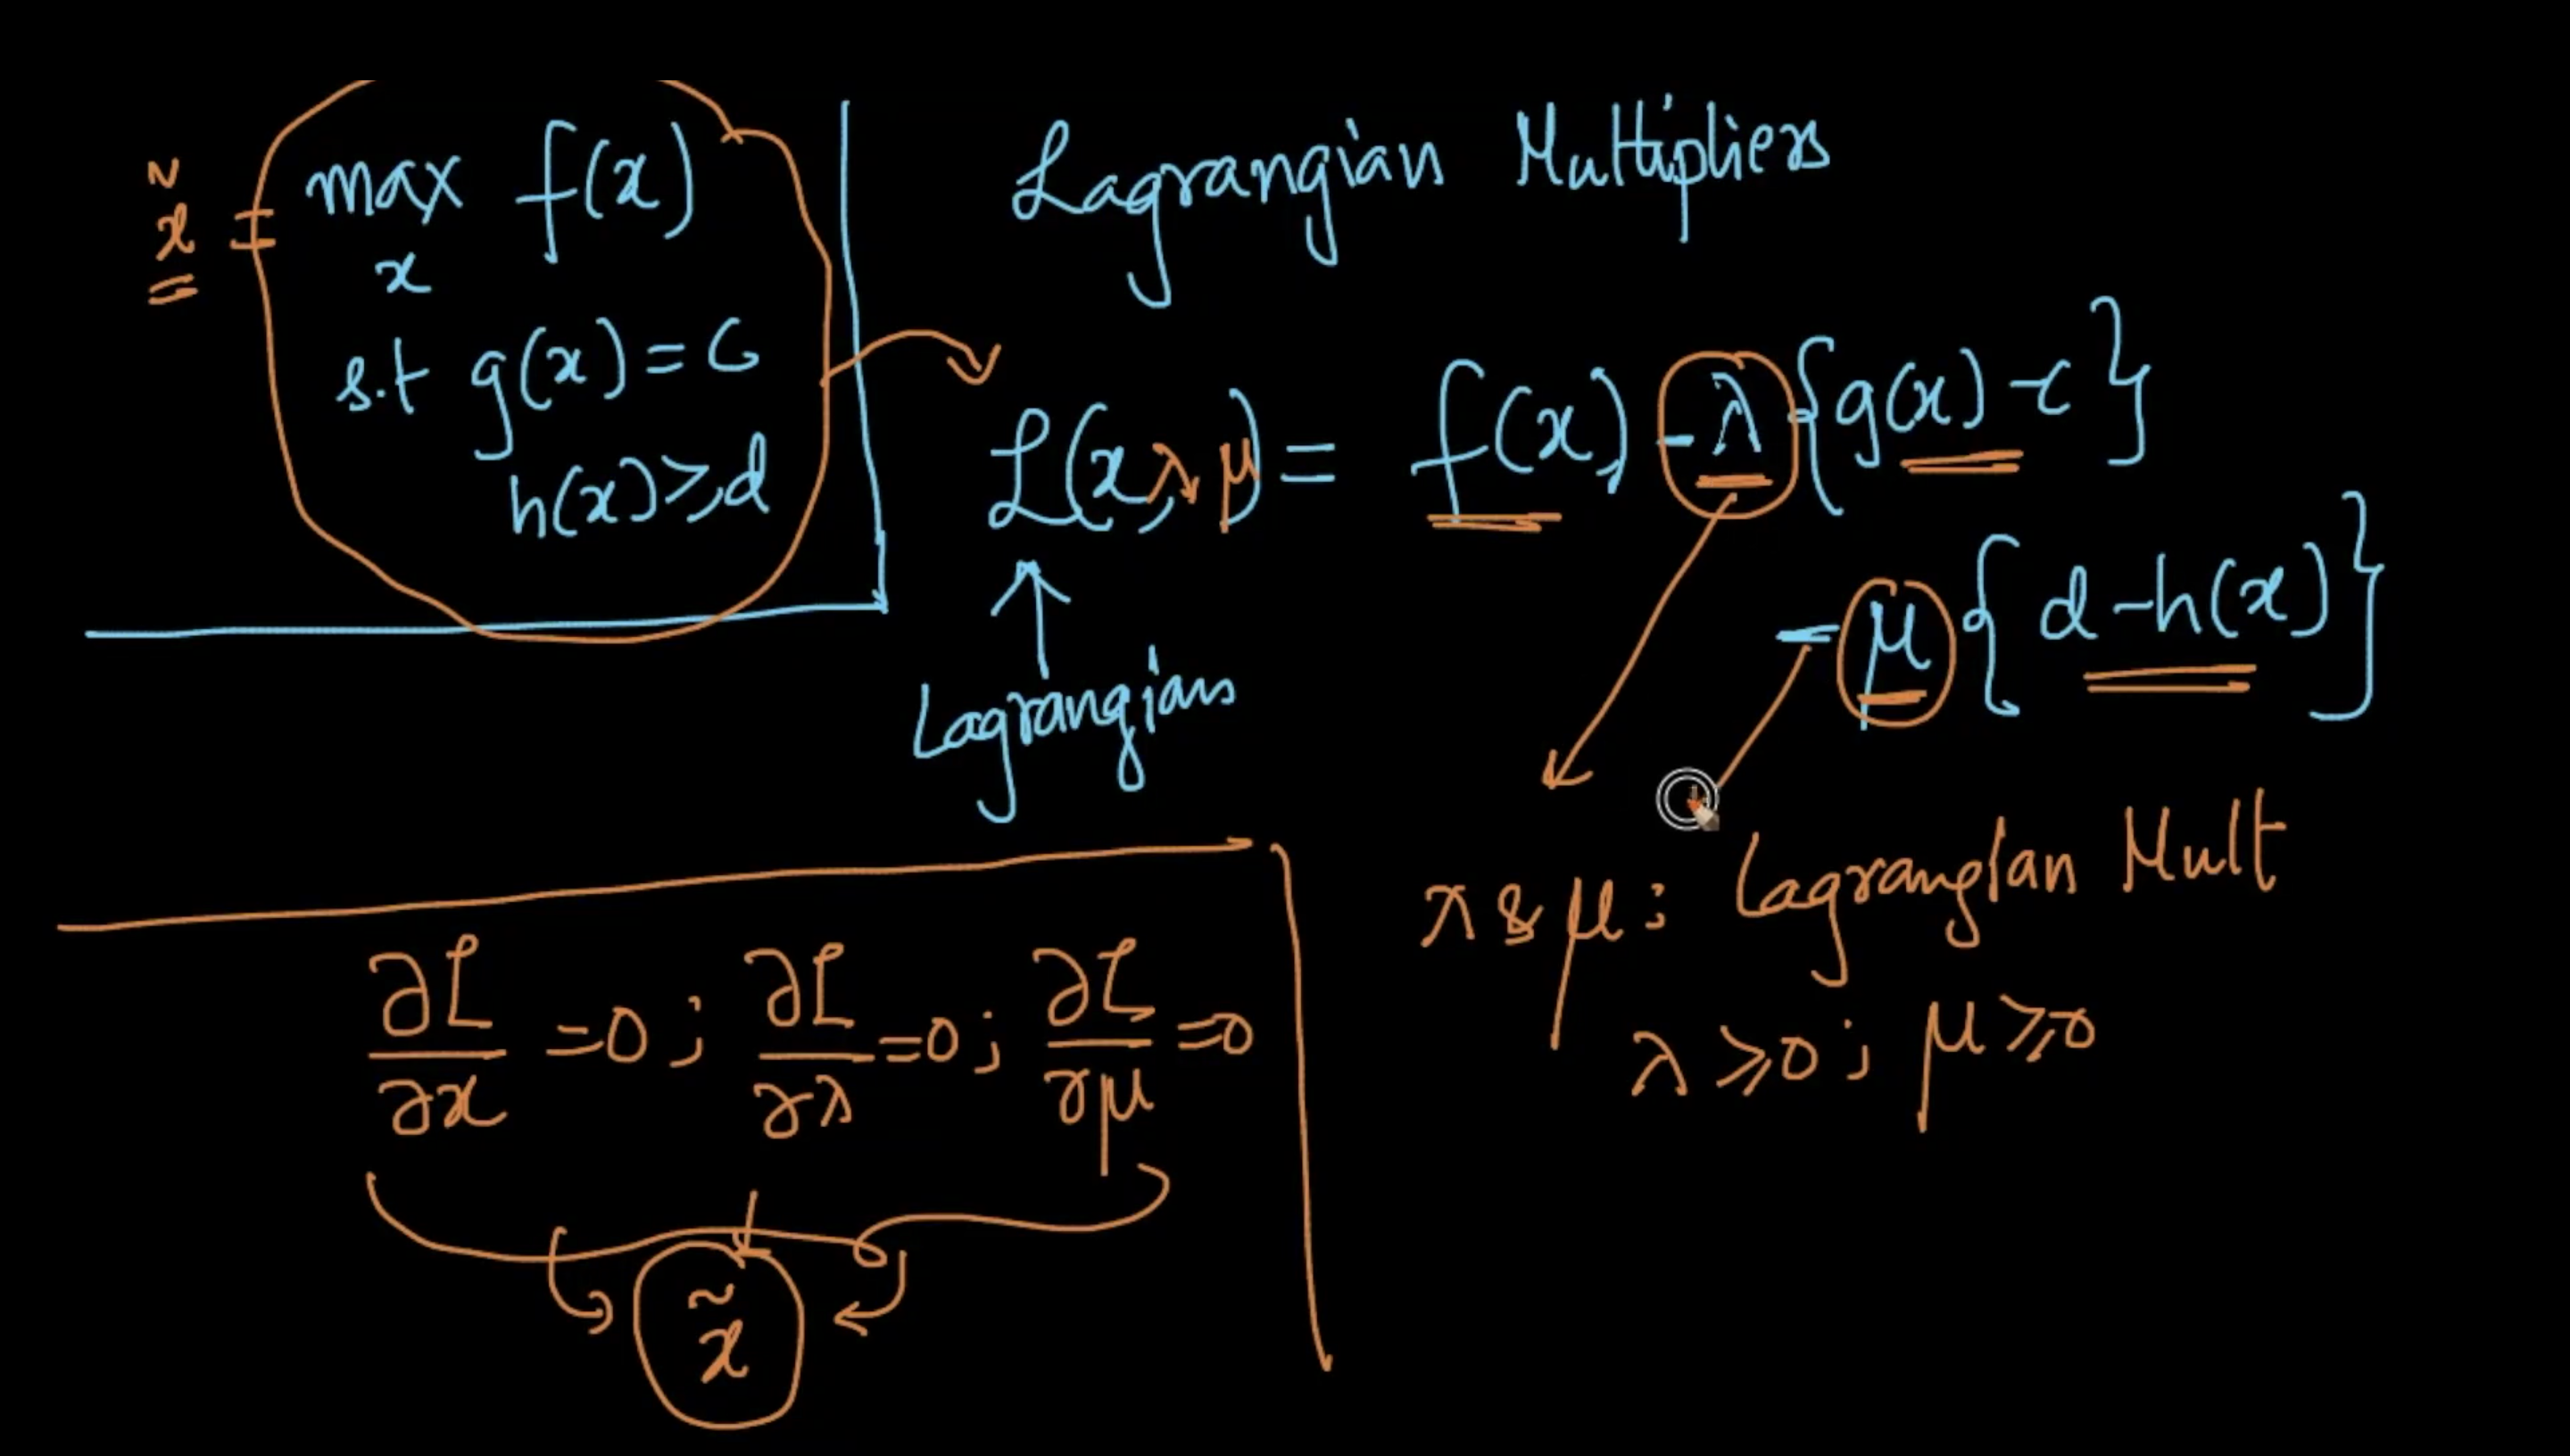 x̃ = max f(x)
x
s.t g(x) = c
h(x) ≥ d
Lagrangian Multipliers
L(x, λ, μ) = f(x) - λ {g(x) - c}
- μ {d - h(x)}
Lagrangian
λ & μ : Lagrangian Mult
λ ≥ 0 ; μ ≥ 0
∂L/∂x = 0 ; ∂L/∂λ = 0 ; ∂L/∂μ = 0
x̃